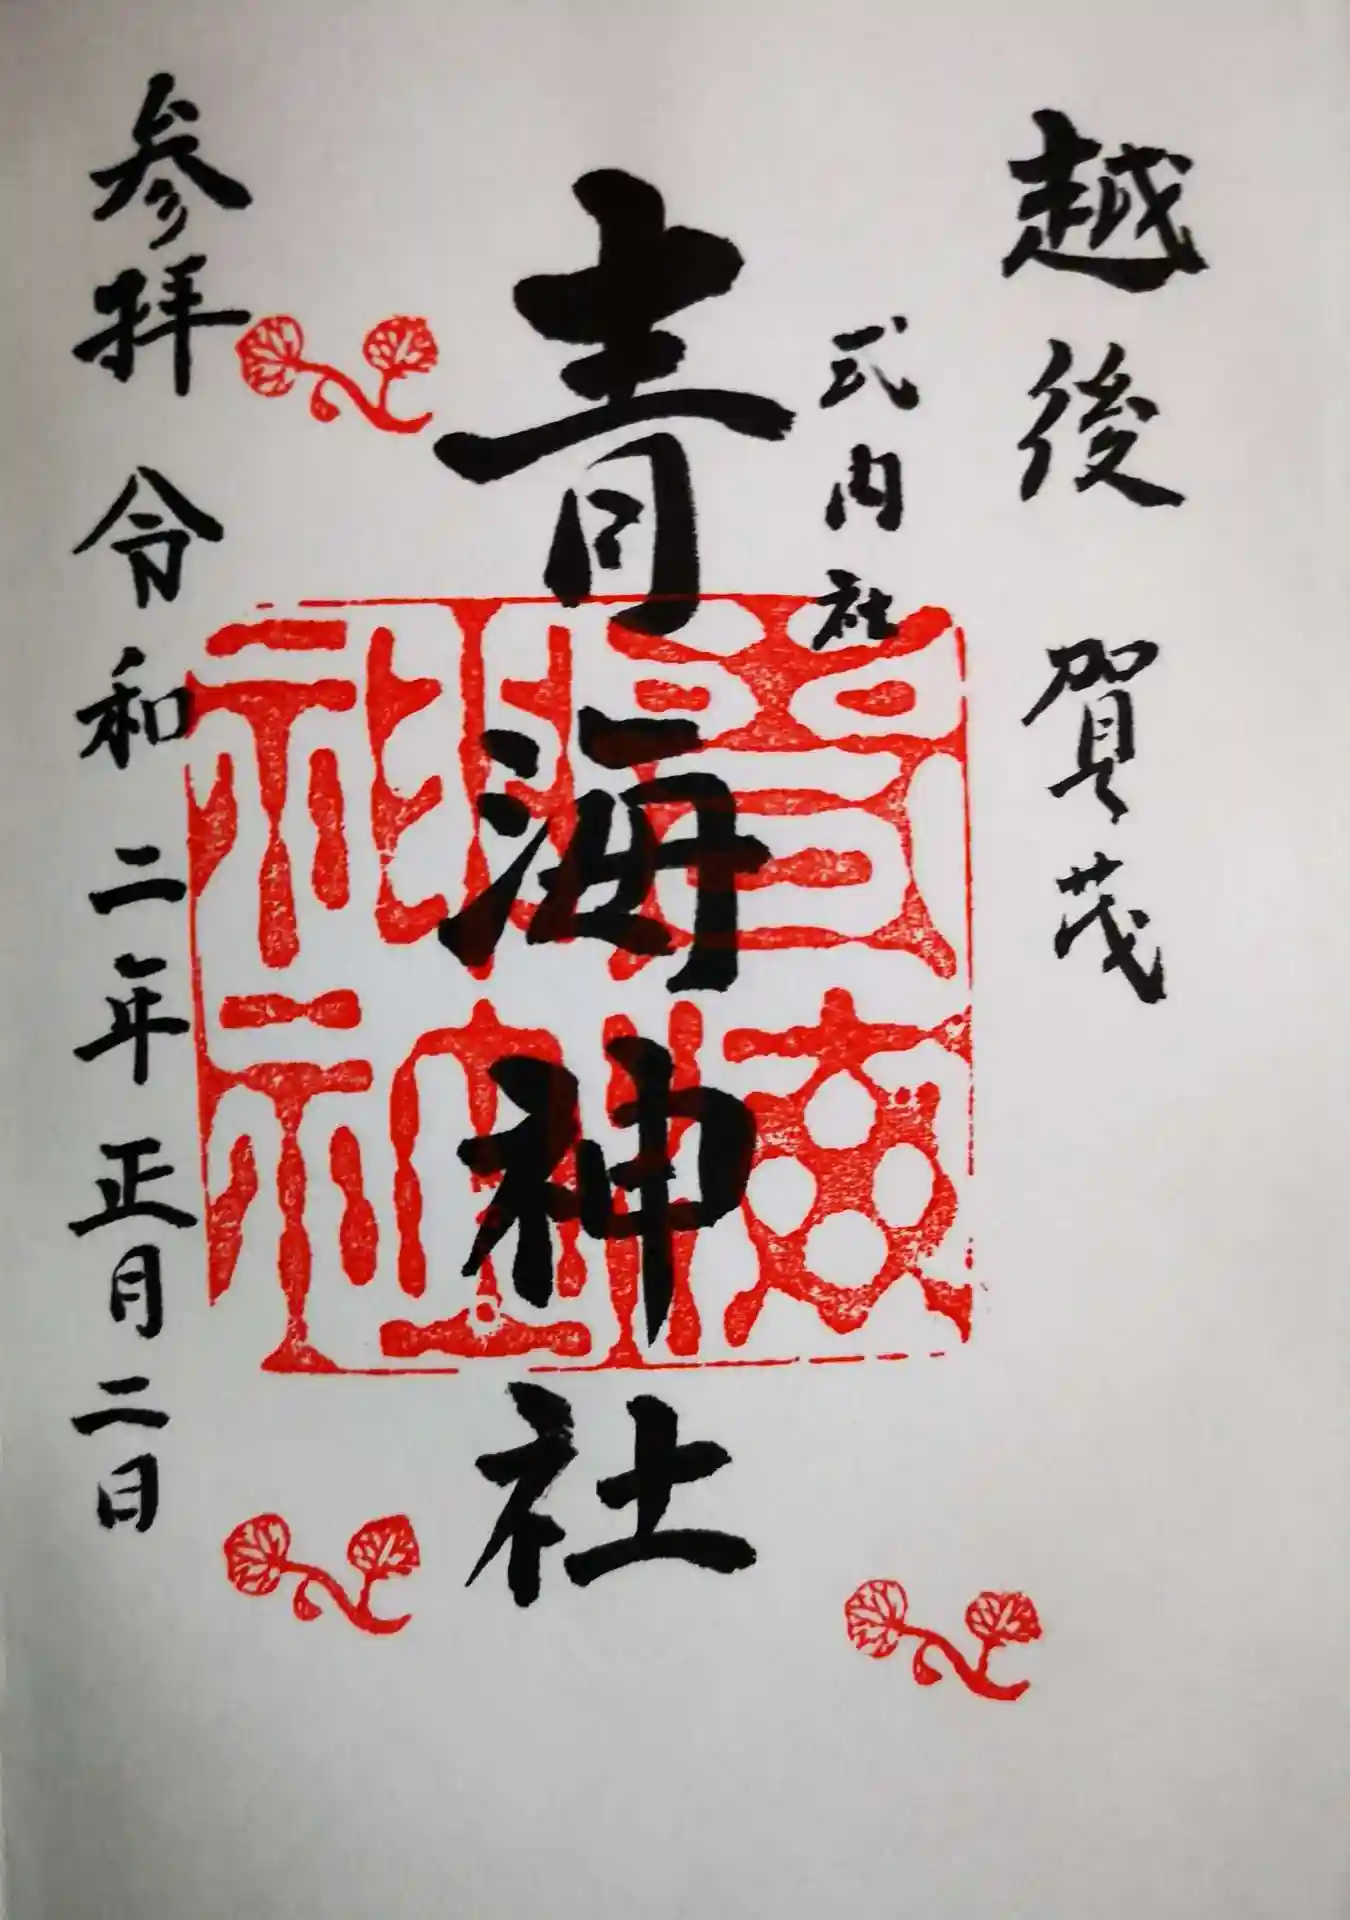 越後 賀茂
式内社
青海神社
参拝 令和二年正月二日